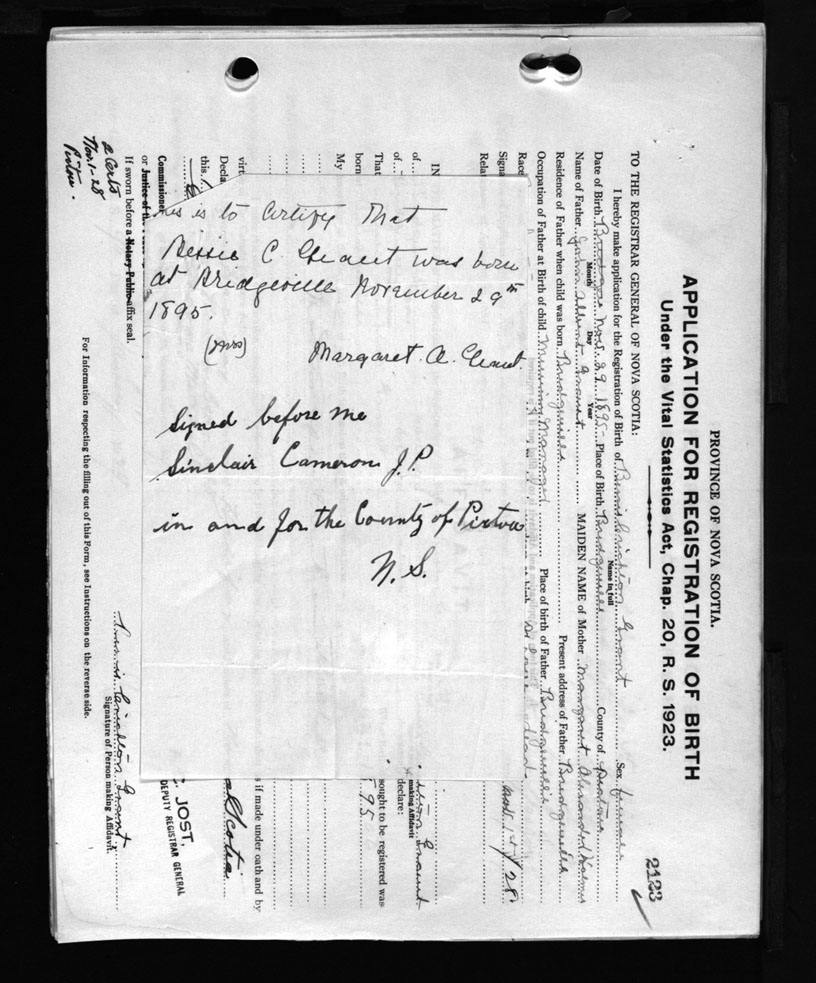 PROVINCE OF NOVA SCOTIA.
APPLICATION FOR REGISTRATION OF BIRTH
Under the Vital Statistics Act, Chap. 20, R. S. 1923.
2123
TO THE REGISTRAR GENERAL OF NOVA SCOTIA:
I hereby make application for the Registration of Birth of Crichton Grant Sex female
Name in full
Date of Birth Nov. 29 1895 Place of Birth Bridgeville County of Pictou
Month Day Year
Name of Father John Grant MAIDEN NAME of Mother Margaret Alexander Holmes
Residence of Father when child was born Bridgeville Present address of Father Bridgeville
Occupation of Father at Birth of child Mining Manager Place of birth of Father Bridgeville
Race
Signa
Rela Nov 1st/28
IN
of
of Grant
making Affidavit
declare:
That sought to be registered was
born 95
My
virt s if made under oath and by
Decla
this Scotia
Commissione
or Justice of th
C. JOST,
DEPUTY REGISTRAR GENERAL
If sworn before a Notary Public affix seal.
Crichton Grant
Signature of Person making Affidavit.
For Information respecting the filling out of this Form, see Instructions on the reverse side.
2 Certs
Nov. 1-28
Pictou.
This is to Certify that
Bessie C. Grant was born
at Bridgeville November 29th
1895.
(Mrs) Margaret A. Grant
Signed before me
Sinclair Cameron J.P.
in and for the County of Pictou
N.S.